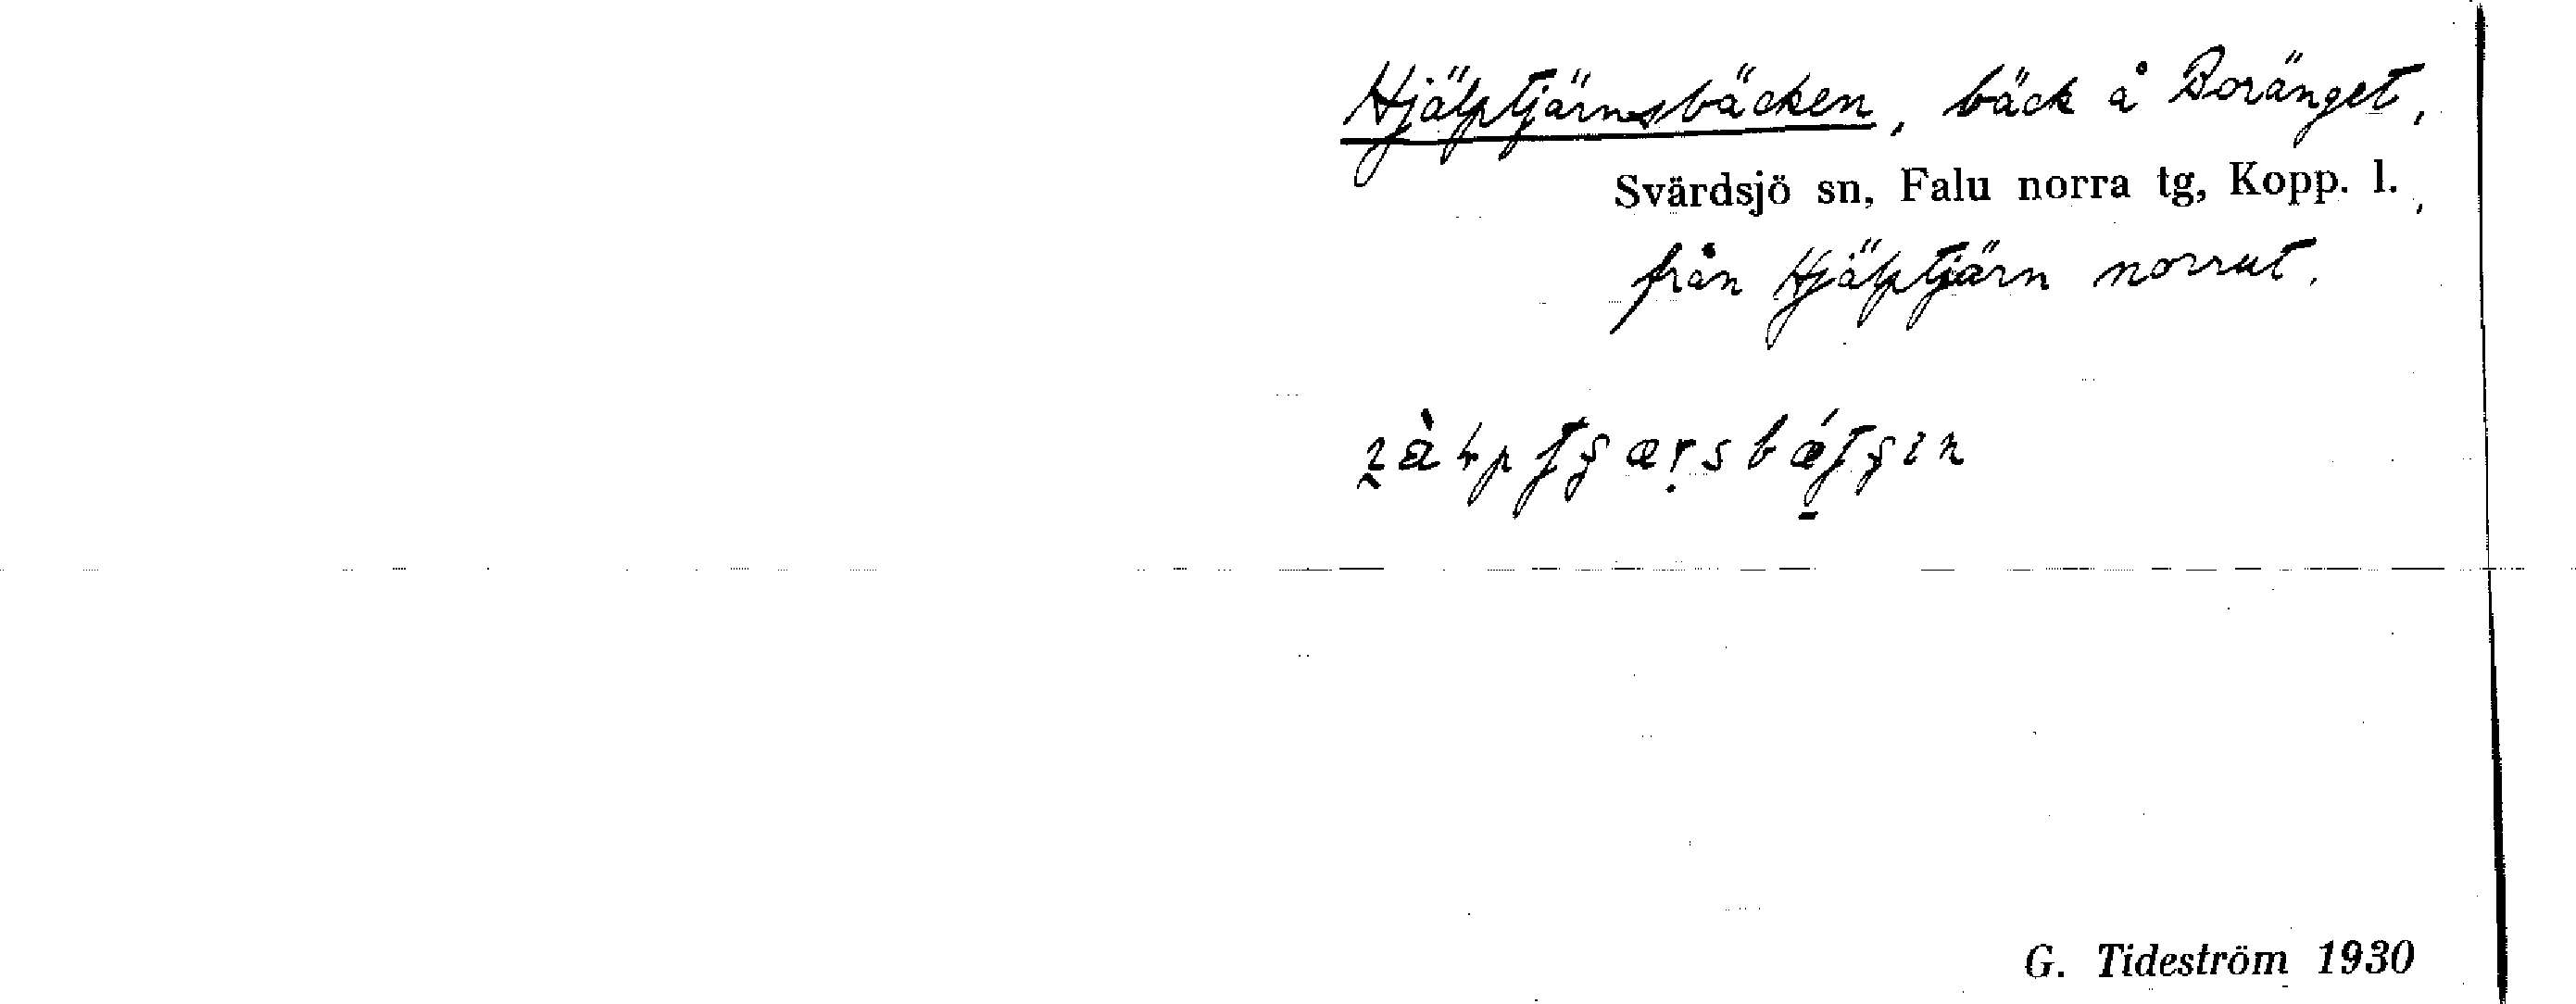 Hjälptjärnsbäcken, bäck å Boränget,
Svärdsjö sn, Falu norra tg, Kopp. l.,
från Hjälptjärn norrut.
G. Tideström 1930